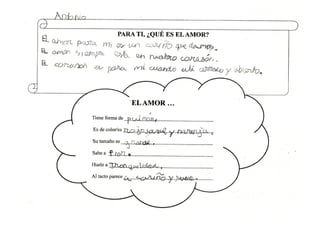 Antonio
PARA TI, ¿QUÉ ES EL AMOR?
EL amor para mi es un cariño que damos.
EL amor siempre está en nuestro corazón.
EL corazón es para mi cuando allí y abierto.
EL AMOR …
Tiene forma de pulmón.
Es de color/es rojo, azul y naranja.
Su tamaño es grande.
Sabe a flor.
Huele a tranquilidad.
Al tacto parece a cariño y suave.